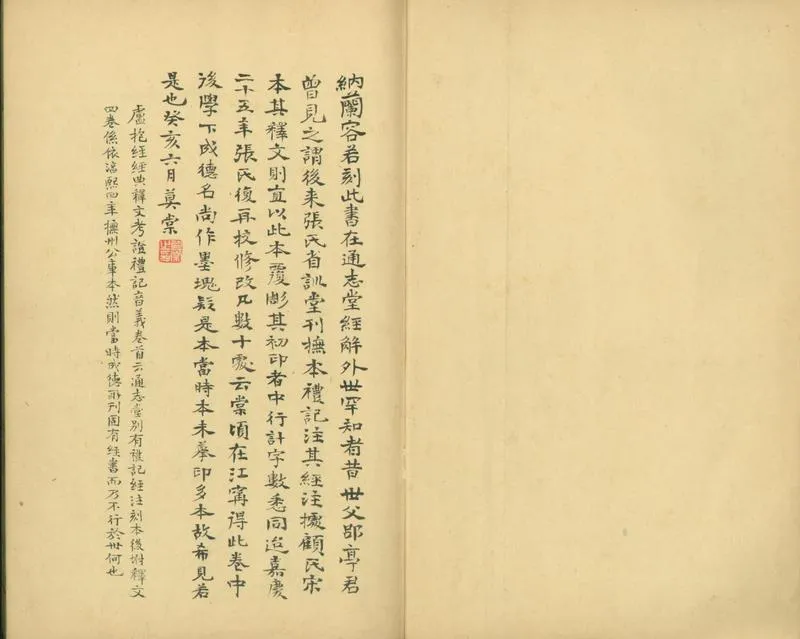 納蘭容若刻此書在通志堂經解外世罕知者昔世父郘亭君
曾見之謂後来張氏省訓堂刊撫本禮記注其經注據顧氏宋
本其釋文則直以此本覆彫其初印者中行計字數悉同迨嘉慶
二十五年張氏復再校修改凡數十處云棠頃在江寗得此卷中
後學下成德名尚作墨塊疑是本當時本未摹印多本故希見若
是也癸亥六月莫棠
盧抱經經典釋文考證禮記音義卷首云通志堂別有禮記經注刻本後坿釋文
四卷係依淳熙四年撫州公庫本然則當時成德所刊固有經書而乃不行於世何也